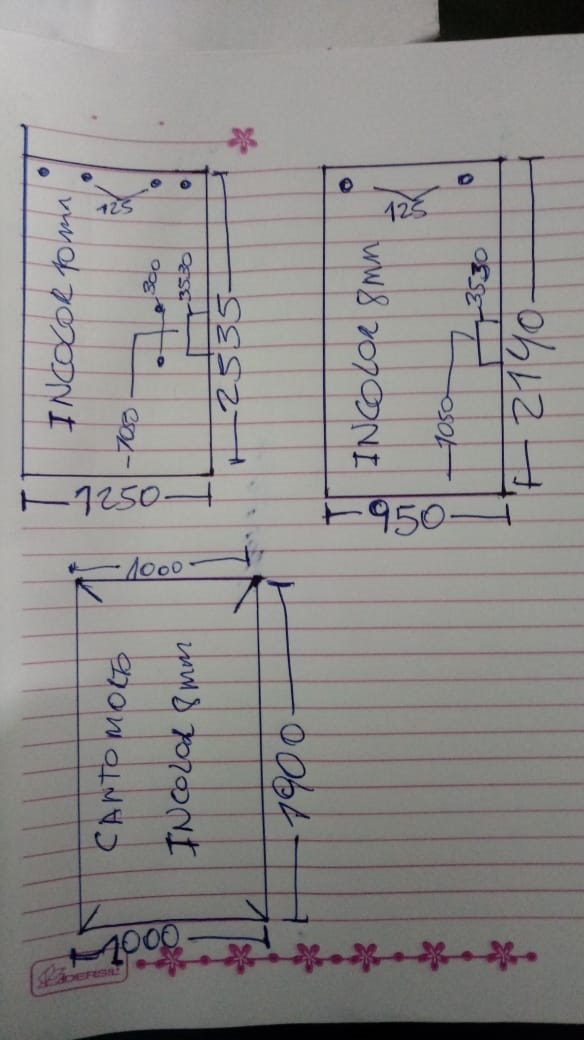 125
INCOLOR 10mm
300
3530
1050
2535
1250
125
INCOLOR 8mm
3530
1050
2140
950
1000
CANTO MORTO
INCOLOR 8mm
1900
1000